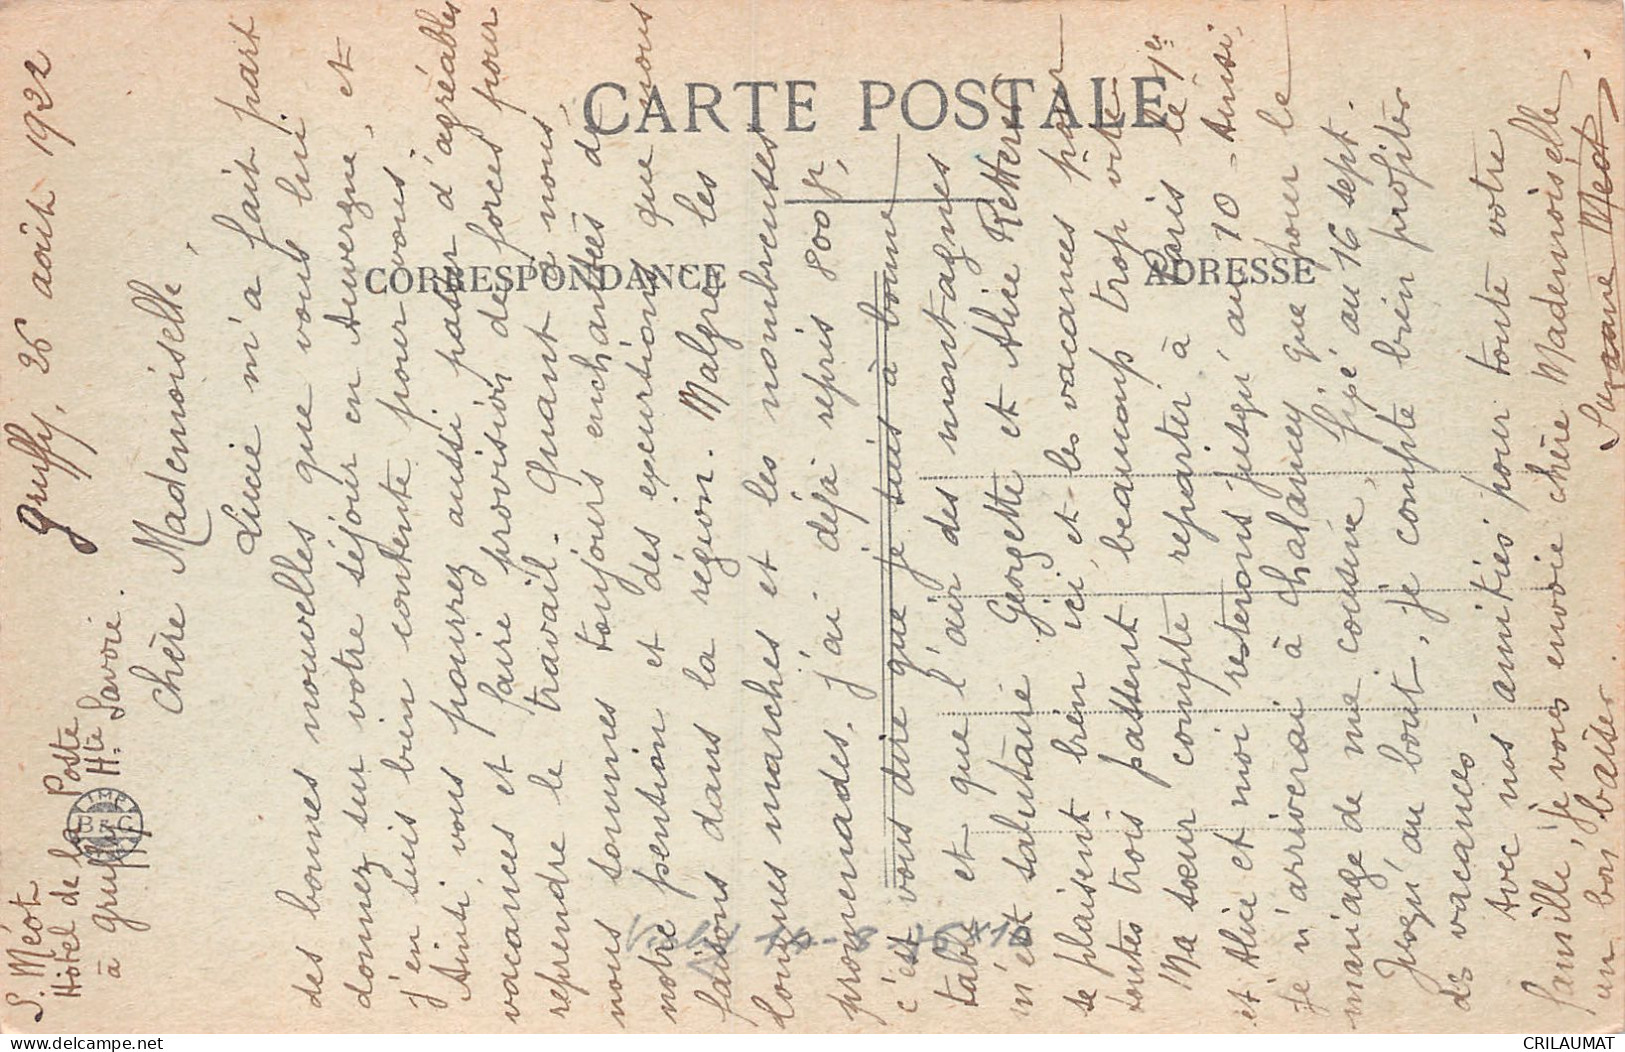 S. Méot
Hôtel de la Poste
à Gruffy Hte Savoie.
Gruffy, 26 août 1922
Chère Mademoiselle,
Lucie m'a fait part
des bonnes nouvelles que vous lui
donnez sur votre séjour en Auvergne, et
j'en suis bien contente pour vous.
Ainsi vous pourrez aussi passer d'agréables
vacances et faire provision de forces pour
reprendre le travail. Quant à nous,
nous sommes toujours enchantées de
notre pension et des excurtions que nous
faisons dans la région. Malgré les
longues marches et les nombreuses
promenades, j'ai déjà repris 800 gr,
c'est vous dire que je suis à bonne
table et que l'air des montagnes
m'est salutaire. Georgette et Alice Retterer
se plaisent bien ici, et les vacances pour
toutes trois passent beaucoup trop vite.
Ma sœur compte repartir à Paris le 1er
et Alice et moi resterons jusqu'au 10 - Ainsi,
je n'arriverai à Chalancey que pour le
mariage de ma cousine, fixé au 16 sept.
Jusqu'au bout, je compte bien profiter
des vacances.
Avec nos amitiés pour toute votre
famille, je vous envoie chère Mademoiselle
un bon baiser.
Suzanne Méot.
CARTE POSTALE
CORRESPONDANCE
ADRESSE
IMP
B & C
CRILAUMAT